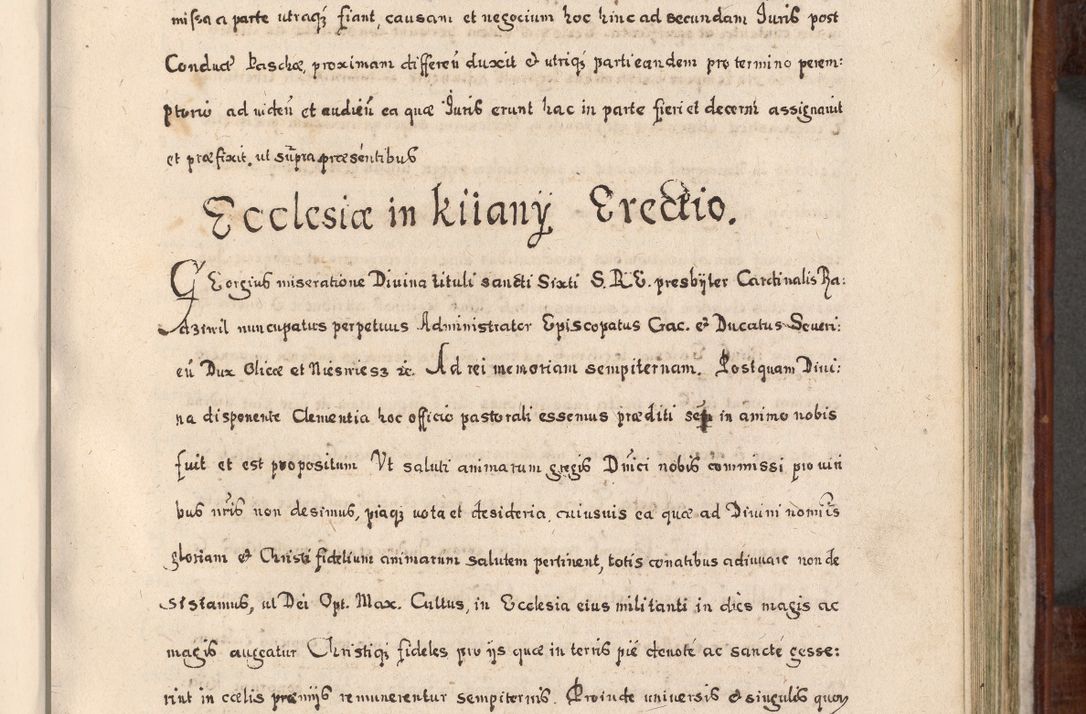 missa a parte utraqꝫ fiant, causam et negocium hoc hinc ad secundam Juris post
Conduct̃ Paschæ, proximam differeñ duxit & utriqꝫ parti eandem pro termino perem:
ptorio ad videñ et audieñ ea quæ Juris erunt hac in parte fieri et decerni assignavit
et præfixit, ut sup̃ra præsentibus
Ecclesiæ in Kiianÿ Erectio.
GEorgius miseratione Divina tituli sancti Sixti S. R. E. presbÿter Cardinalis Ra:
dziwil nuncupatus perpetuus Administrator Episcopatus Crac. & Ducatus Severi:
eñ Dux Olicæ et Nieswiesz etc. Ad rei memoriam sempiternam. Postquam Divi:
na disponente Clementia hoc officio pastorali essemus præditi semp in animo nobis
fuit et est propositum Ut saluti animarum gregis Dñici nobis commissi pro viri
bus nr̃is non desimus, piaqꝫ vota et desideria, cuiusvis ea quæ ad Divini nominis
gloriam & Christi fidelium animarum salutem pertinent, totis conatibus adiuvare non de
sistamus, ut Dei Opt. Max. Cultus, in Ecclesia eius militanti in dies magis ac
magis augeatur Christiqꝫ fideles pro ijs quæ in terris piè devotè ac sanctè gesse:
rint in cœlis præmijs remunerentur sempiternis. Proinde universis & singulis quorum